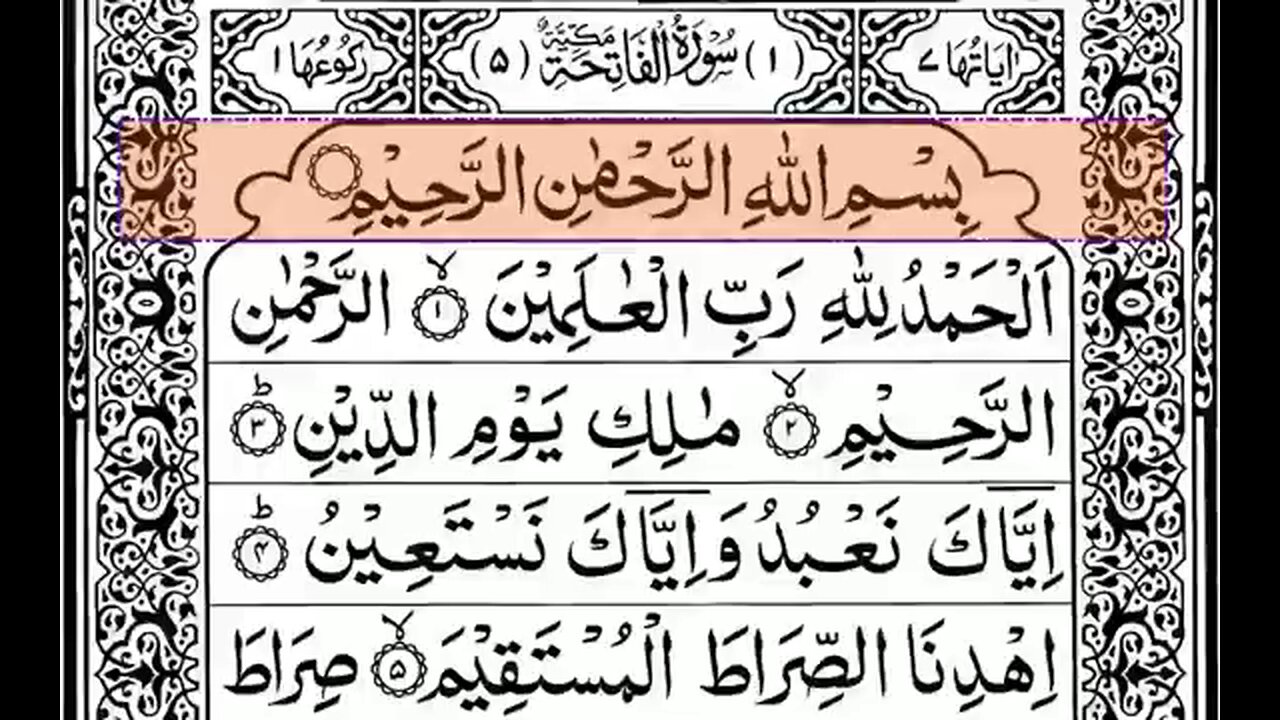 اٰيَاتُهَا ٧ (١) سُوْرَةُ الْفَاتِحَةِ مَكِّيَّةٌ (٥) رُكُوْعُهَا ١
بِسْمِ اللّٰهِ الرَّحْمٰنِ الرَّحِيْمِ
اَلْحَمْدُ لِلّٰهِ رَبِّ الْعٰلَمِيْنَ ۙ﴿۱﴾ الرَّحْمٰنِ
الرَّحِيْمِ ۙ﴿۲﴾ مٰلِكِ يَوْمِ الدِّيْنِ ؕ﴿۳﴾
اِيَّاكَ نَعْبُدُ وَ اِيَّاكَ نَسْتَعِيْنُ ؕ﴿۴﴾
اِهْدِنَا الصِّرَاطَ الْمُسْتَقِيْمَ ۙ﴿۵﴾ صِرَاطَ